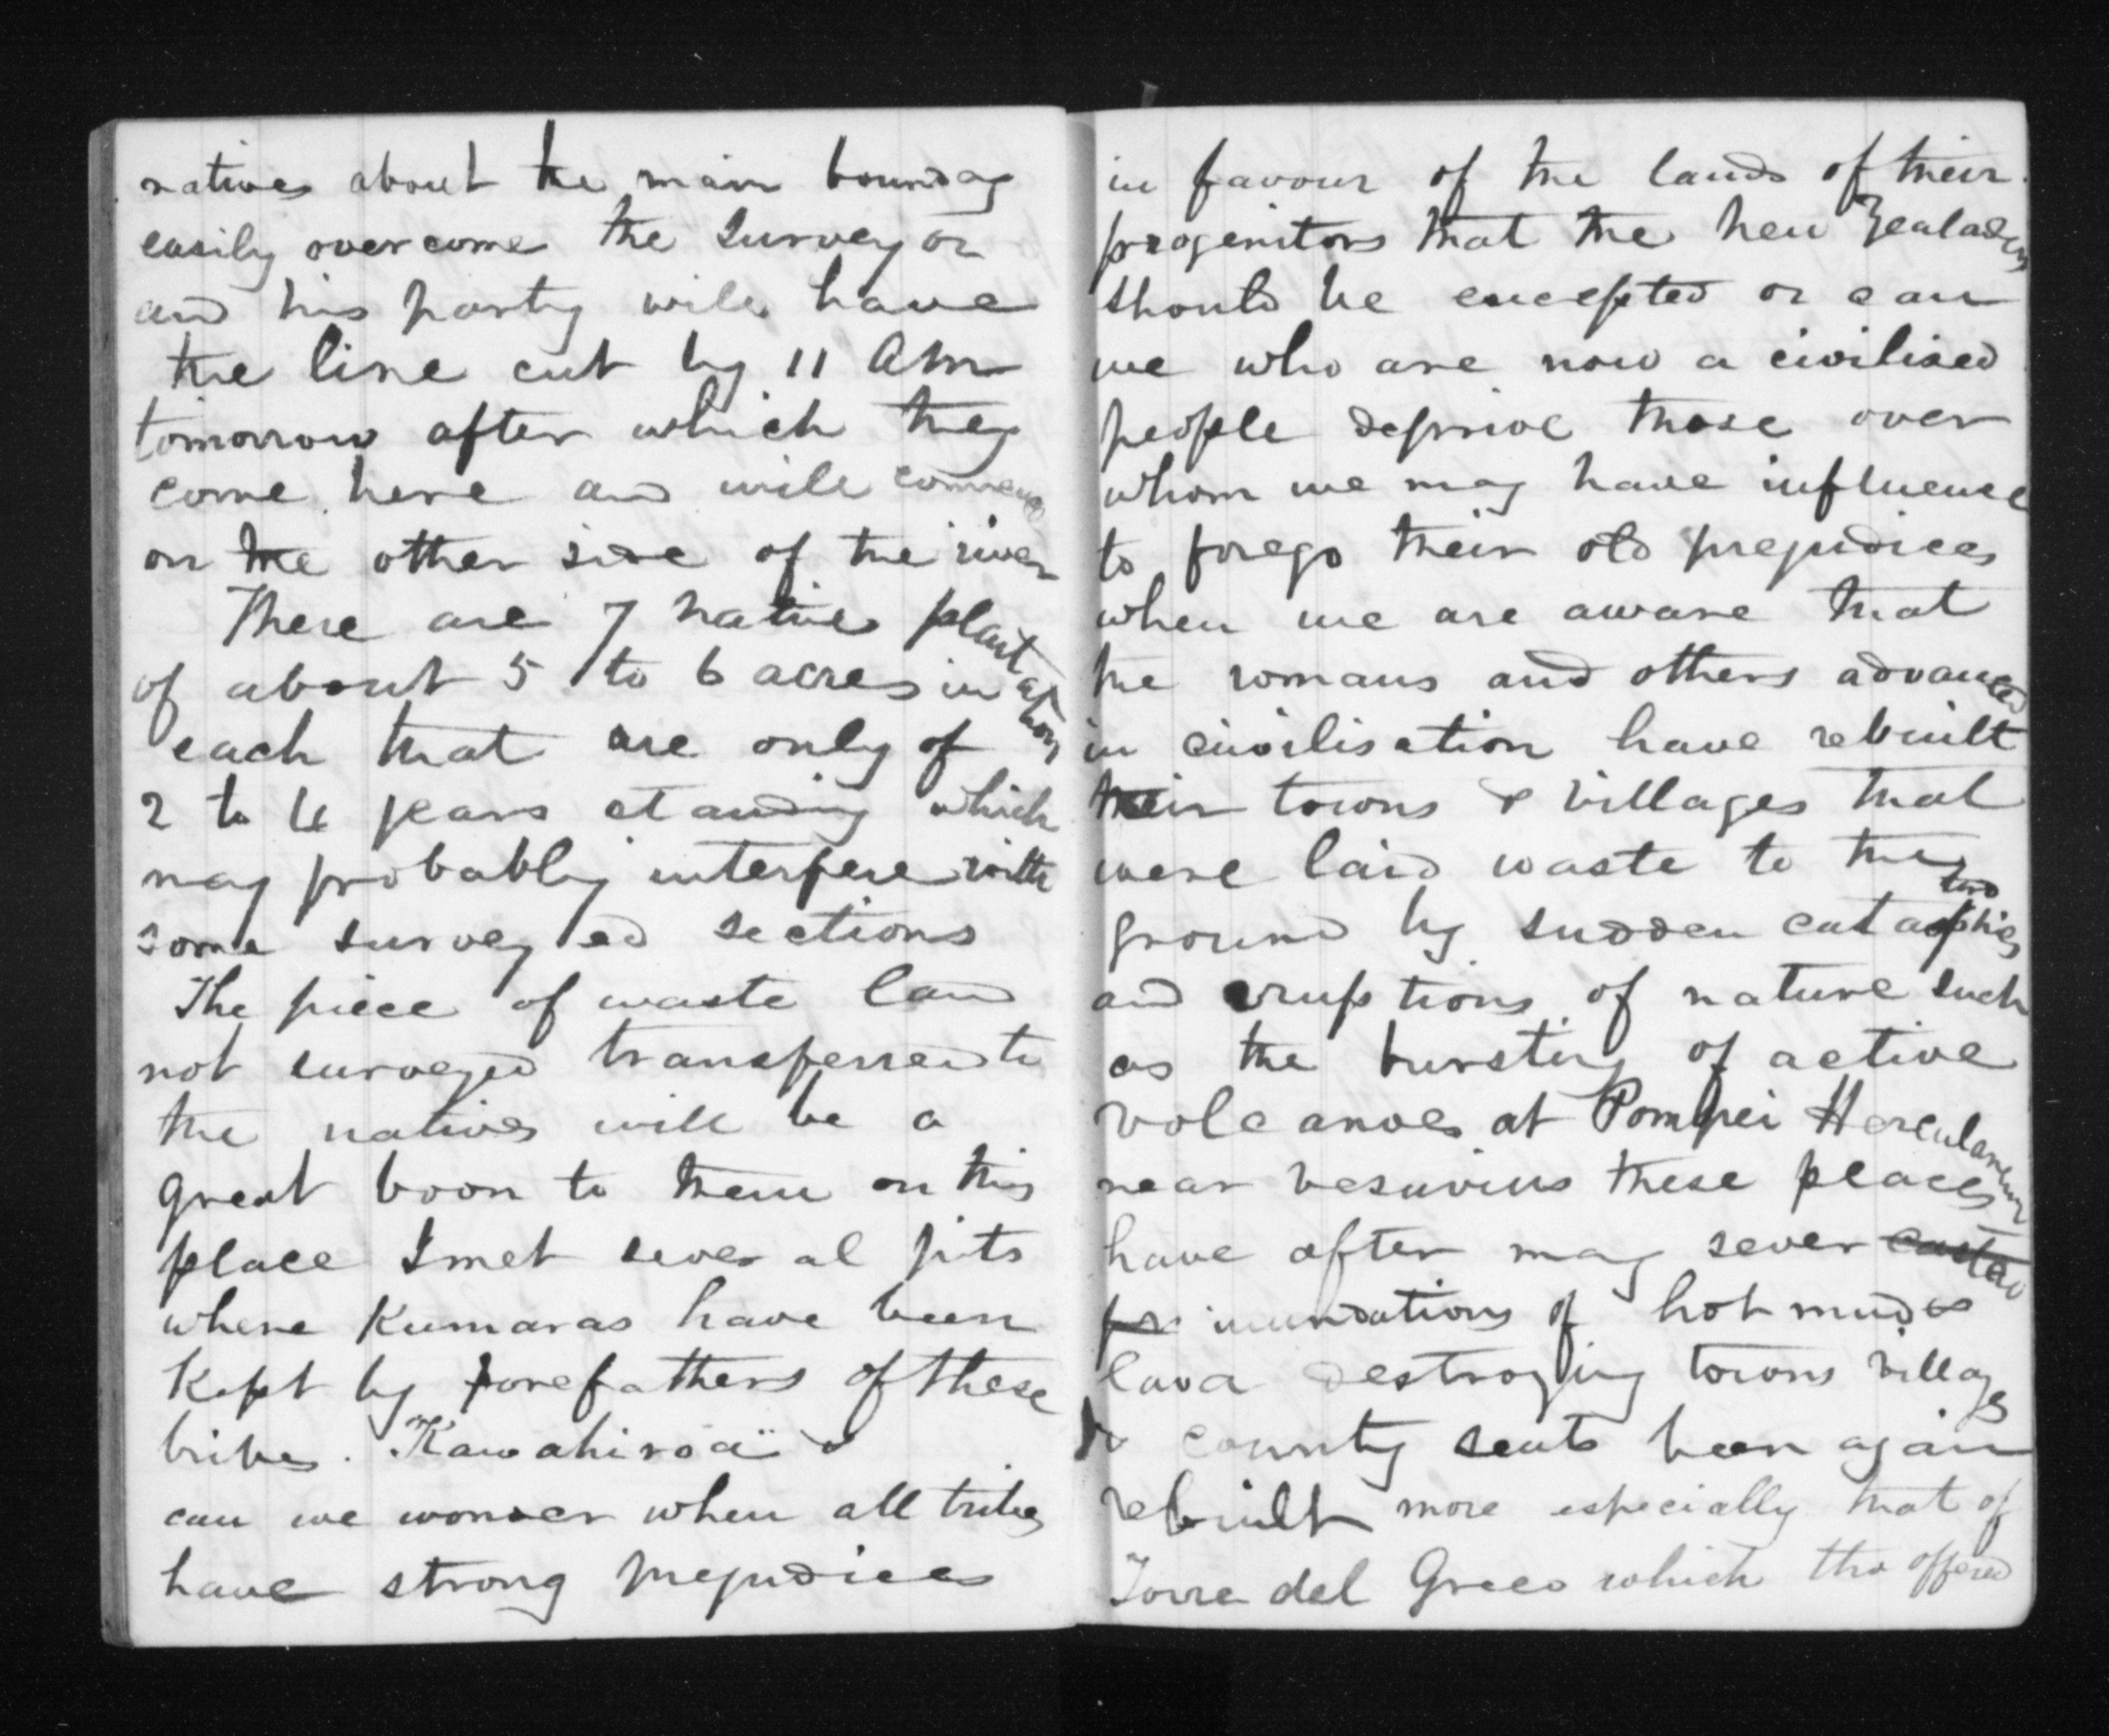 natives about the main bounday
easily overcome the Surveyor
and his party will have
the line cut by 11 AM
tomorrow after which they
come here and will commence
on the other side of the river
There are 7 natives plantations
of about 5 to 6 acres in
each that are only of
2 to 4 years standing which
may probably interfere with
some surveyed sections
The piece of waste land
not surveyed transferred to
the natives will be a
great boon to them on this
place I met several pits
where Kumaras have been
Kept by forefathers of these
tribes. "Kawahiroa" &
can we wonder when all tribes
have strong prejudices
in favour of the lands of their
progenitors that the New Zealaders
should be excepted or can
we who are now a civilised
people deprive those over
whom we may have influence
to forego their old prejudices
when we are aware that
the romans and others advanced
in civilisation have rebuilt
their towns & villages that
were laid waste to the
ground by sudden
and eruptions of nature such
as the bursting of active
volcanoes at Pompei Herculaneum
near vesuvius these places
have after may sever
inundations of hot mud &
lava destroying towns villages
& county seats been again
rebuilt more especially that of
Torre del Greco which tho offered